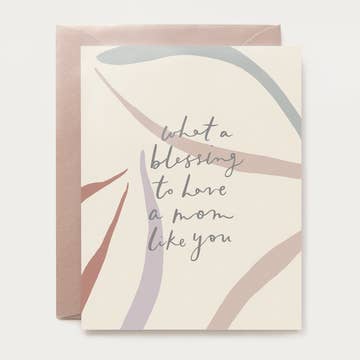 what a
blessing
to have
a mom
like you